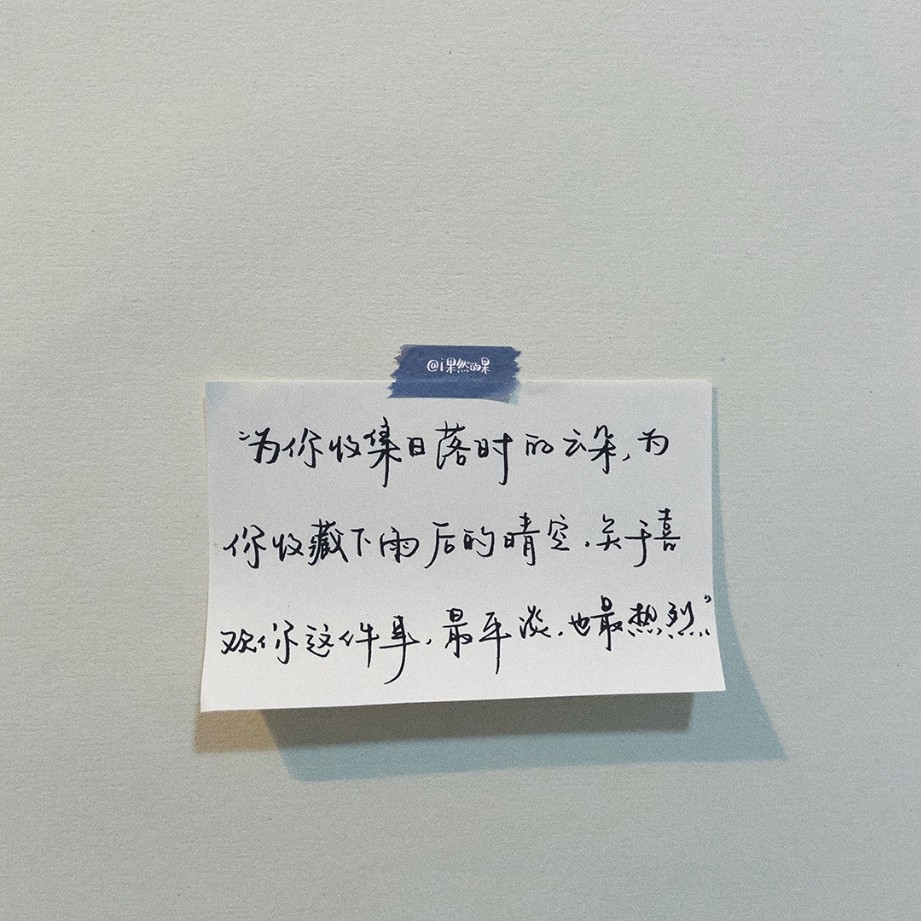 @i果然的果
"为你收集日落时的云朵,为
你收藏下雨后的晴空.关于喜
欢你这件事,最平淡.也最热烈"